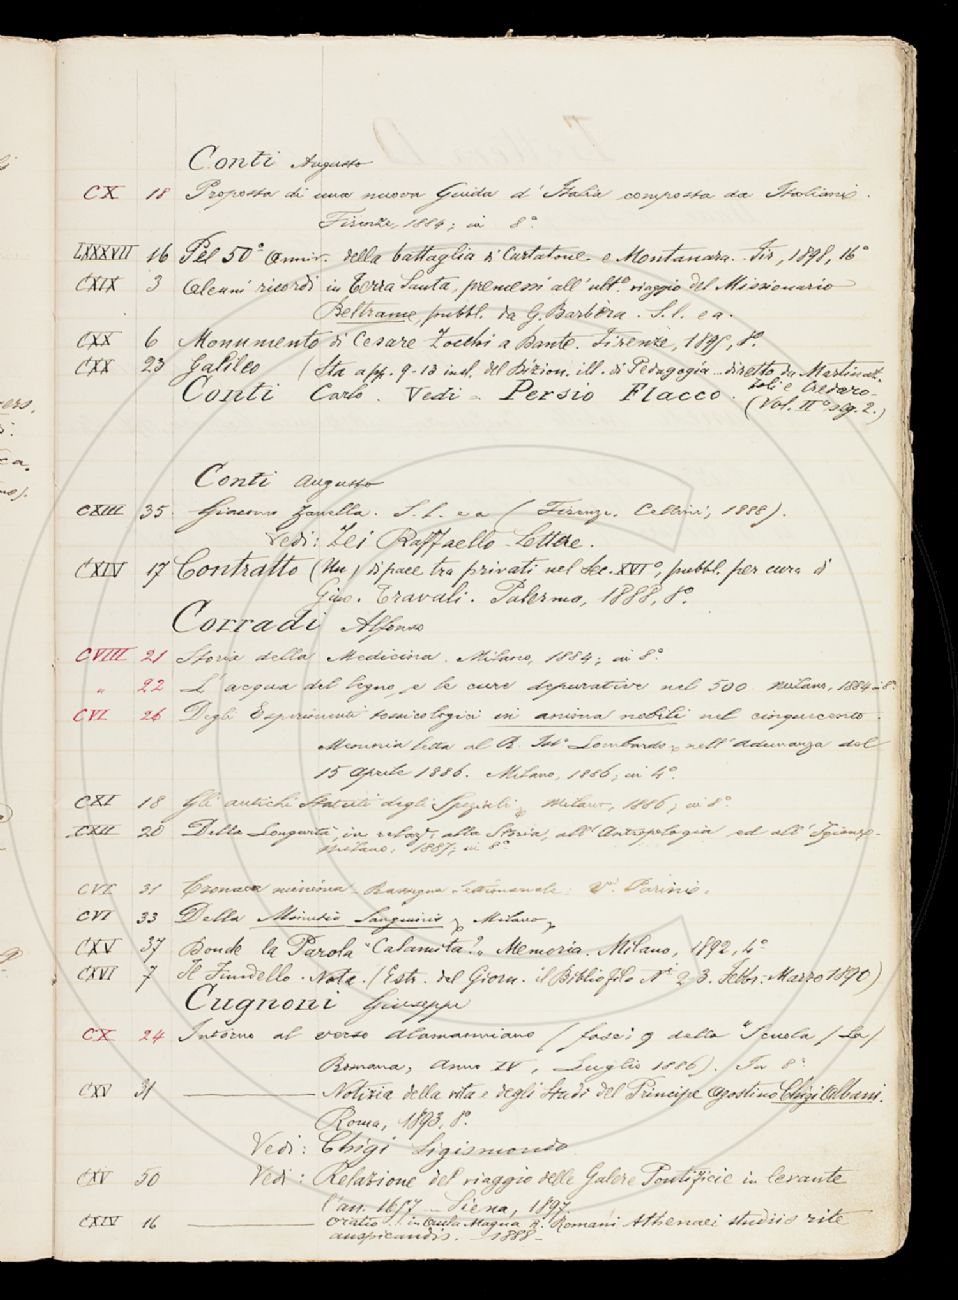 Conti Augusto
CX 18 Proposta di una nuova Guida d'Italia composta da Italiani.
Firenze, 1884; in 8°
LXXXVII 16 Pel 50° anniv. della battaglia di Curtatone e Montanara. Fir., 1898, 16°
CXIX 3 Alcuni ricordi in Terra Santa, premessi all'ult° viaggio del Missionario
Beltrame, pubbl. da G. Barbèra. S. l. e a.
CXX 6 Monumento di Cesare Zocchi a Dante. Firenze, 8°.
CXX 23 Galileo (Sta a pp. 9-13 del Dizion. ill. di Pedagogia diretto da Martinaz-
zoli e Credaro.
Conti Carlo. Vedi - Persio Flacco. (Vol. II° 2.)
Conti Augusto
CXIII 35. Giacomo Zanella. S. l. e a (Firenze, Cellini, 1888).
Vedi: Zei Raffaello - Lettere.
CXIV 17 Contratto (Un) di pace tra privati nel Sec. XVI°, pubbl. per cura di
Gius. Travali. Palermo, 1888, 8°.
Corradi Alfonso
CVIII 21 Storia della Medicina. Milano, 1884; in 8°
" 22 L'acqua del legno e le cure depurative nel 500 Milano, 1884 in 8°
CVI 26 Degli Esperimenti tossicologici in anima nobili nel cinquecento.
Memoria letta al R. Ist° Lombardo, nell'adunanza del
15 aprile 1886. Milano, 1886; in 4°.
CXI 18 Gli antichi Statuti degli Speziali, Milano, 1886; in 8°.
CXII 20 Della Longevità, in relaz.e alla Storia, all'Antropologia ed all'Igiene.
Milano, 1887; in 8°
CVI 31 Cronaca minima - Rassegna settimanale: Vi Parini.
CVI 33 Della Minutio Sanguinis, Milano,
CXV 37 Donde la Parola "Calamita?" Memoria. Milano, 1892, 4°
CXVI 7 Il Nota. (Estr. del Giorn. il Bibliofilo N.i 2-3. Febbr.-Marzo 1890)
Cugnoni Giuseppe
CX 24 Intorno al verso Alamanniano (fasc. 9 della "Scuola (La)
Romana, Anno IV, Luglio 1886). In 8°
CXV 31 Notizia della vita e degli Studi del Principe Agostino Chigi Albani.
Roma, 1893, 8°.
Vedi: Chigi Sigismondo
CXV 50 Vedi: Relazione del viaggio delle Galere Pontificie in levante
l'an. Siena, 1897.
CXIV 16 Oratio in Aula Magna R. Romani Athenaei studiis rite
auspicandis. 1888-